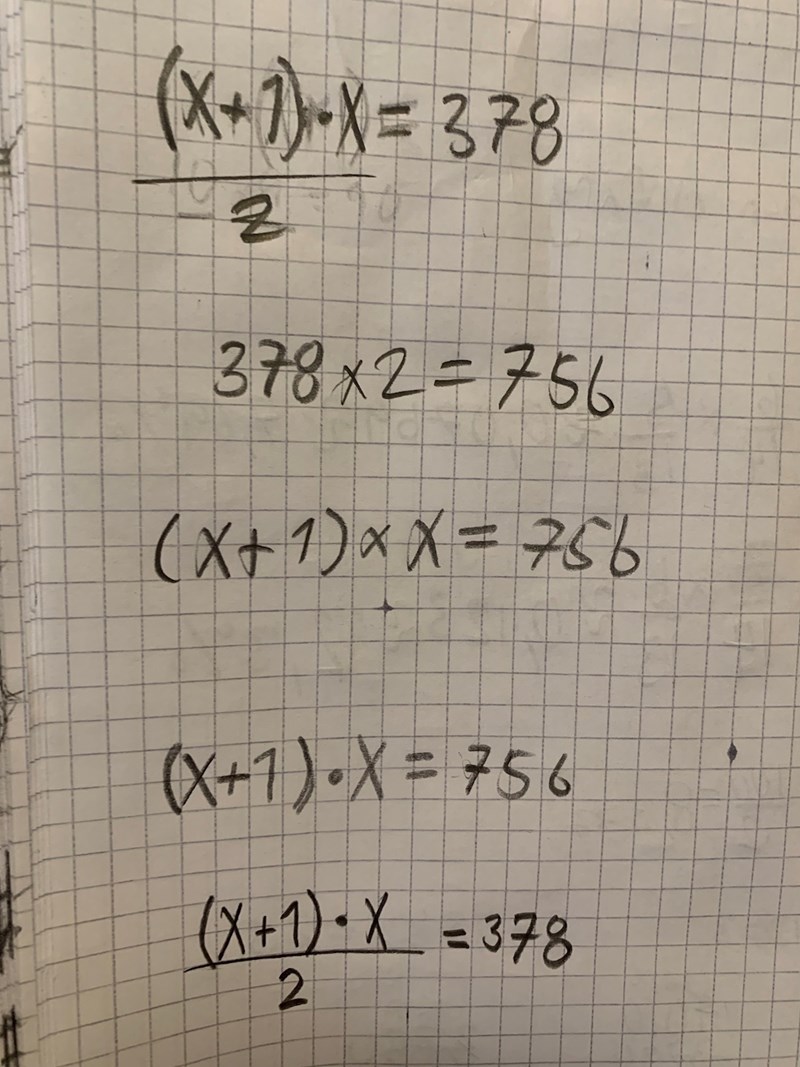 (x+1)·x = 378
2
378 x 2 = 756
(x+1) x x = 756
(x+1)·x = 756
(x+1)·x = 378
2